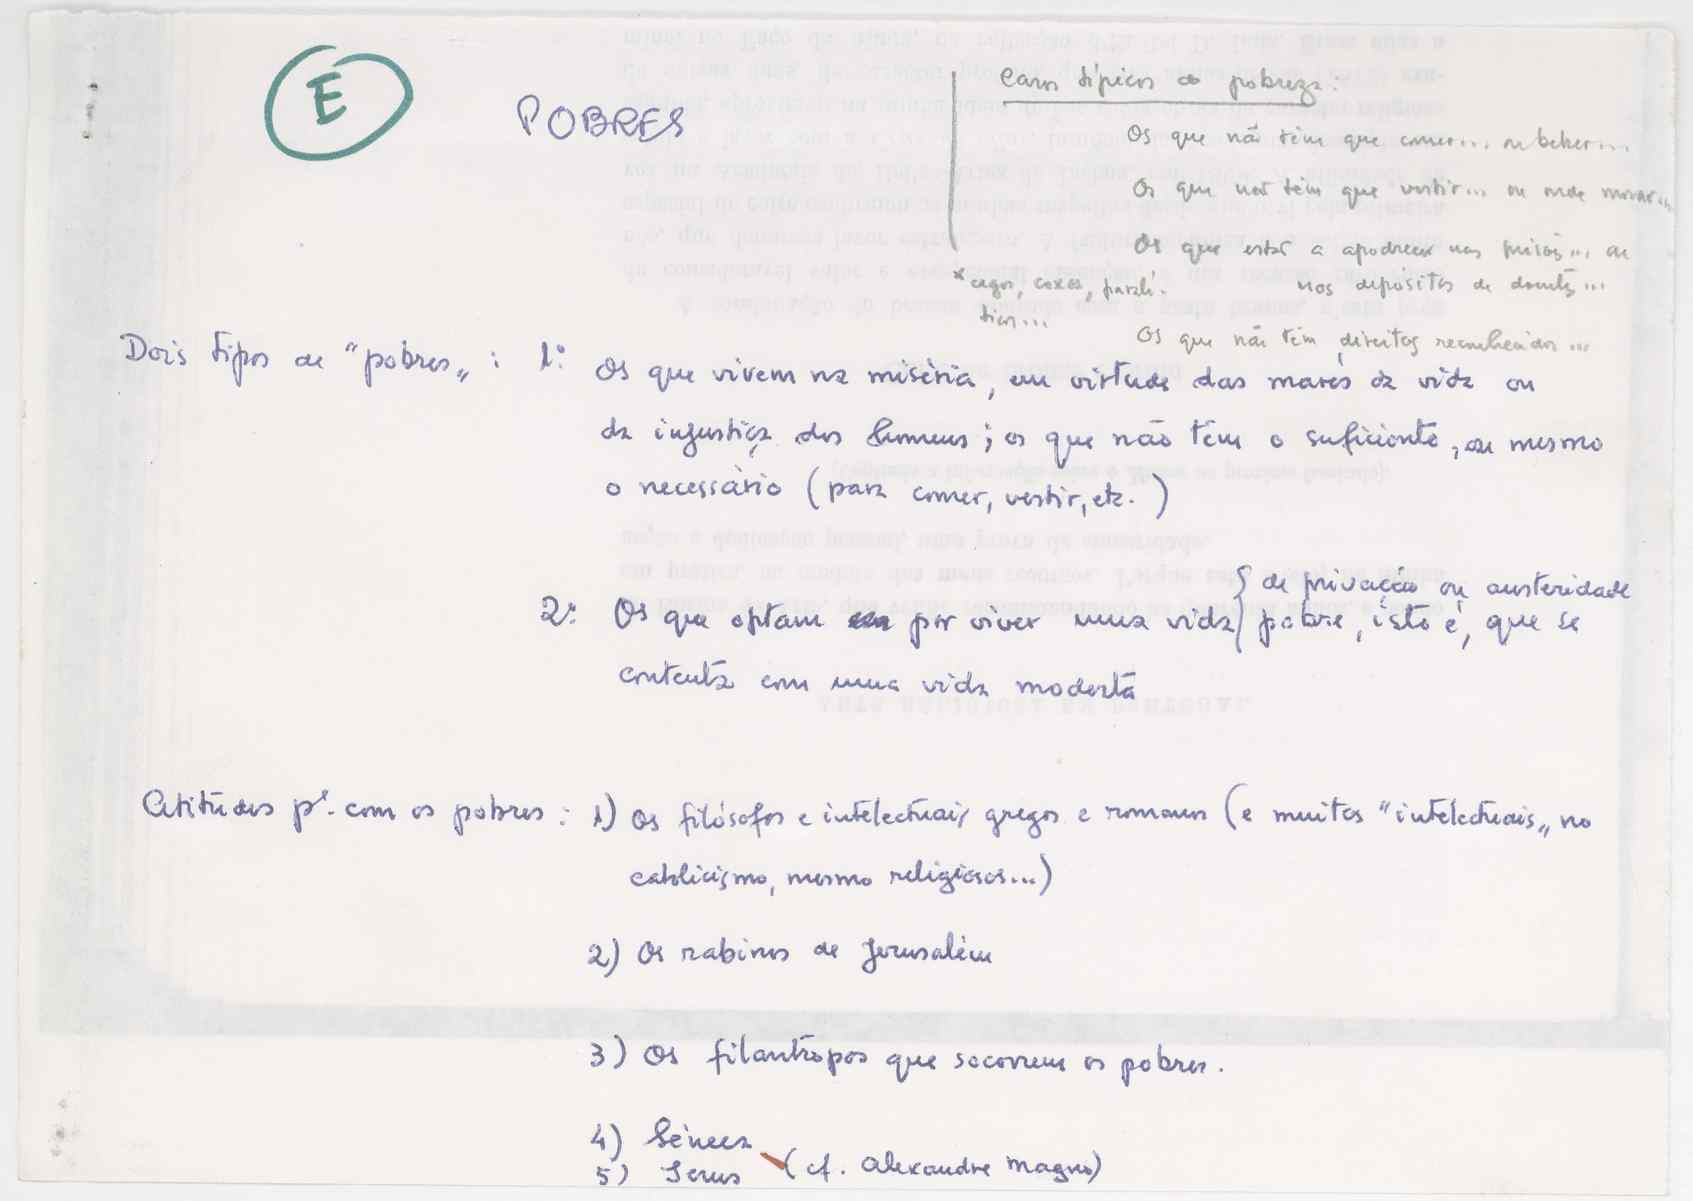 E
POBRES
Casos típicos de pobreza:
Os que não têm que comer... ou beber...
Os que não têm que vestir... ou onde morar...
Os que estão a apodrecer nas prisões... ou
nos depósitos de doentes...
* cegos, coxos, paralí-
ticos...
Os que não têm direitos reconhecidos...
Dois tipos de "pobres" : 1º Os que vivem na miséria, em virtude das marés da vida ou
da injustiça dos homens ; os que não têm o suficiente, ou mesmo
o necessário (para comer, vestir, etc.)
de privação ou austeridade
2º Os que optam por viver uma vida pobre, isto é, que se
contenta com uma vida modesta
Atitudes pª com os pobres : 1) Os filósofos e intelectuais gregos e romanos (e muitos "intelectuais" no
catolicismo, mesmo religiosos...)
2) Os rabinos de Jerusalém
3) Os filantropos que socorrem os pobres.
4) Séneca
5) Jesus (cf. Alexandre Magno)